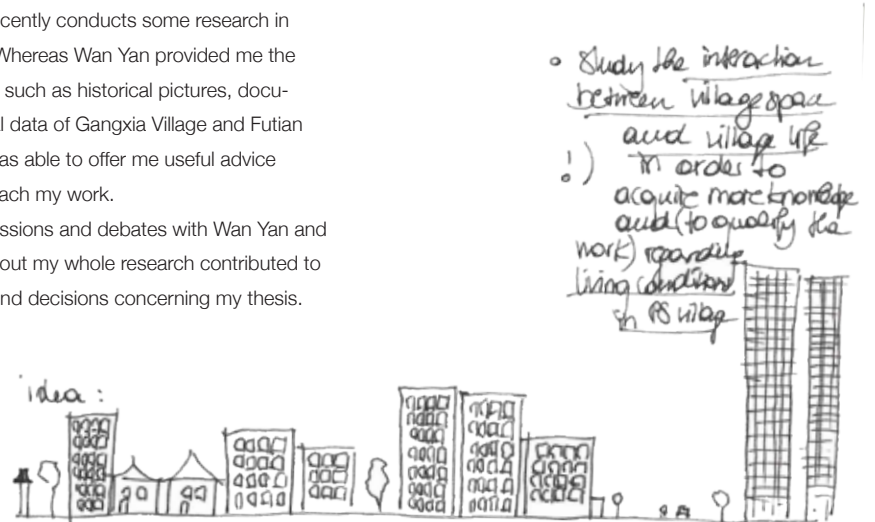 cently conducts some research in
Whereas Wan Yan provided me the
such as historical pictures, docu-
l data of Gangxia Village and Futian
as able to offer me useful advice
ach my work.
ssions and debates with Wan Yan and
out my whole research contributed to
nd decisions concerning my thesis.
• Study the interaction
between village space
and village life
!) in order to
acquire more knowledge
and (to qualify the
work) regarding
living conditions
in village
idea :